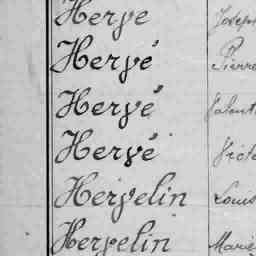 Herve Joseph
Hervé Pierre
Hervé Valent
Hervé Victo
Hervelin Louis
Hervelin Marie